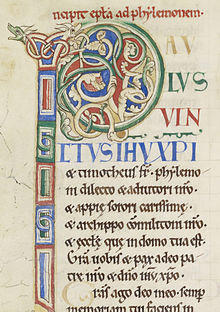 Incipit epła ad phylemonem.
PAV
LVS
VIN
CTVS IHV XPI
& timotheus fr̄. phylemo
ni dilecto & adiutori nr̄o
& appie sorori carissime.
& archippo cōmilitoni nr̄o
& ecclę que in domo tua est.
Gr̄a uobis & pax a deo pa
tre nr̄o & dño ihū xp̄o.
Gr̄as ago deo meo. semp̱
memoriam tui faciens in